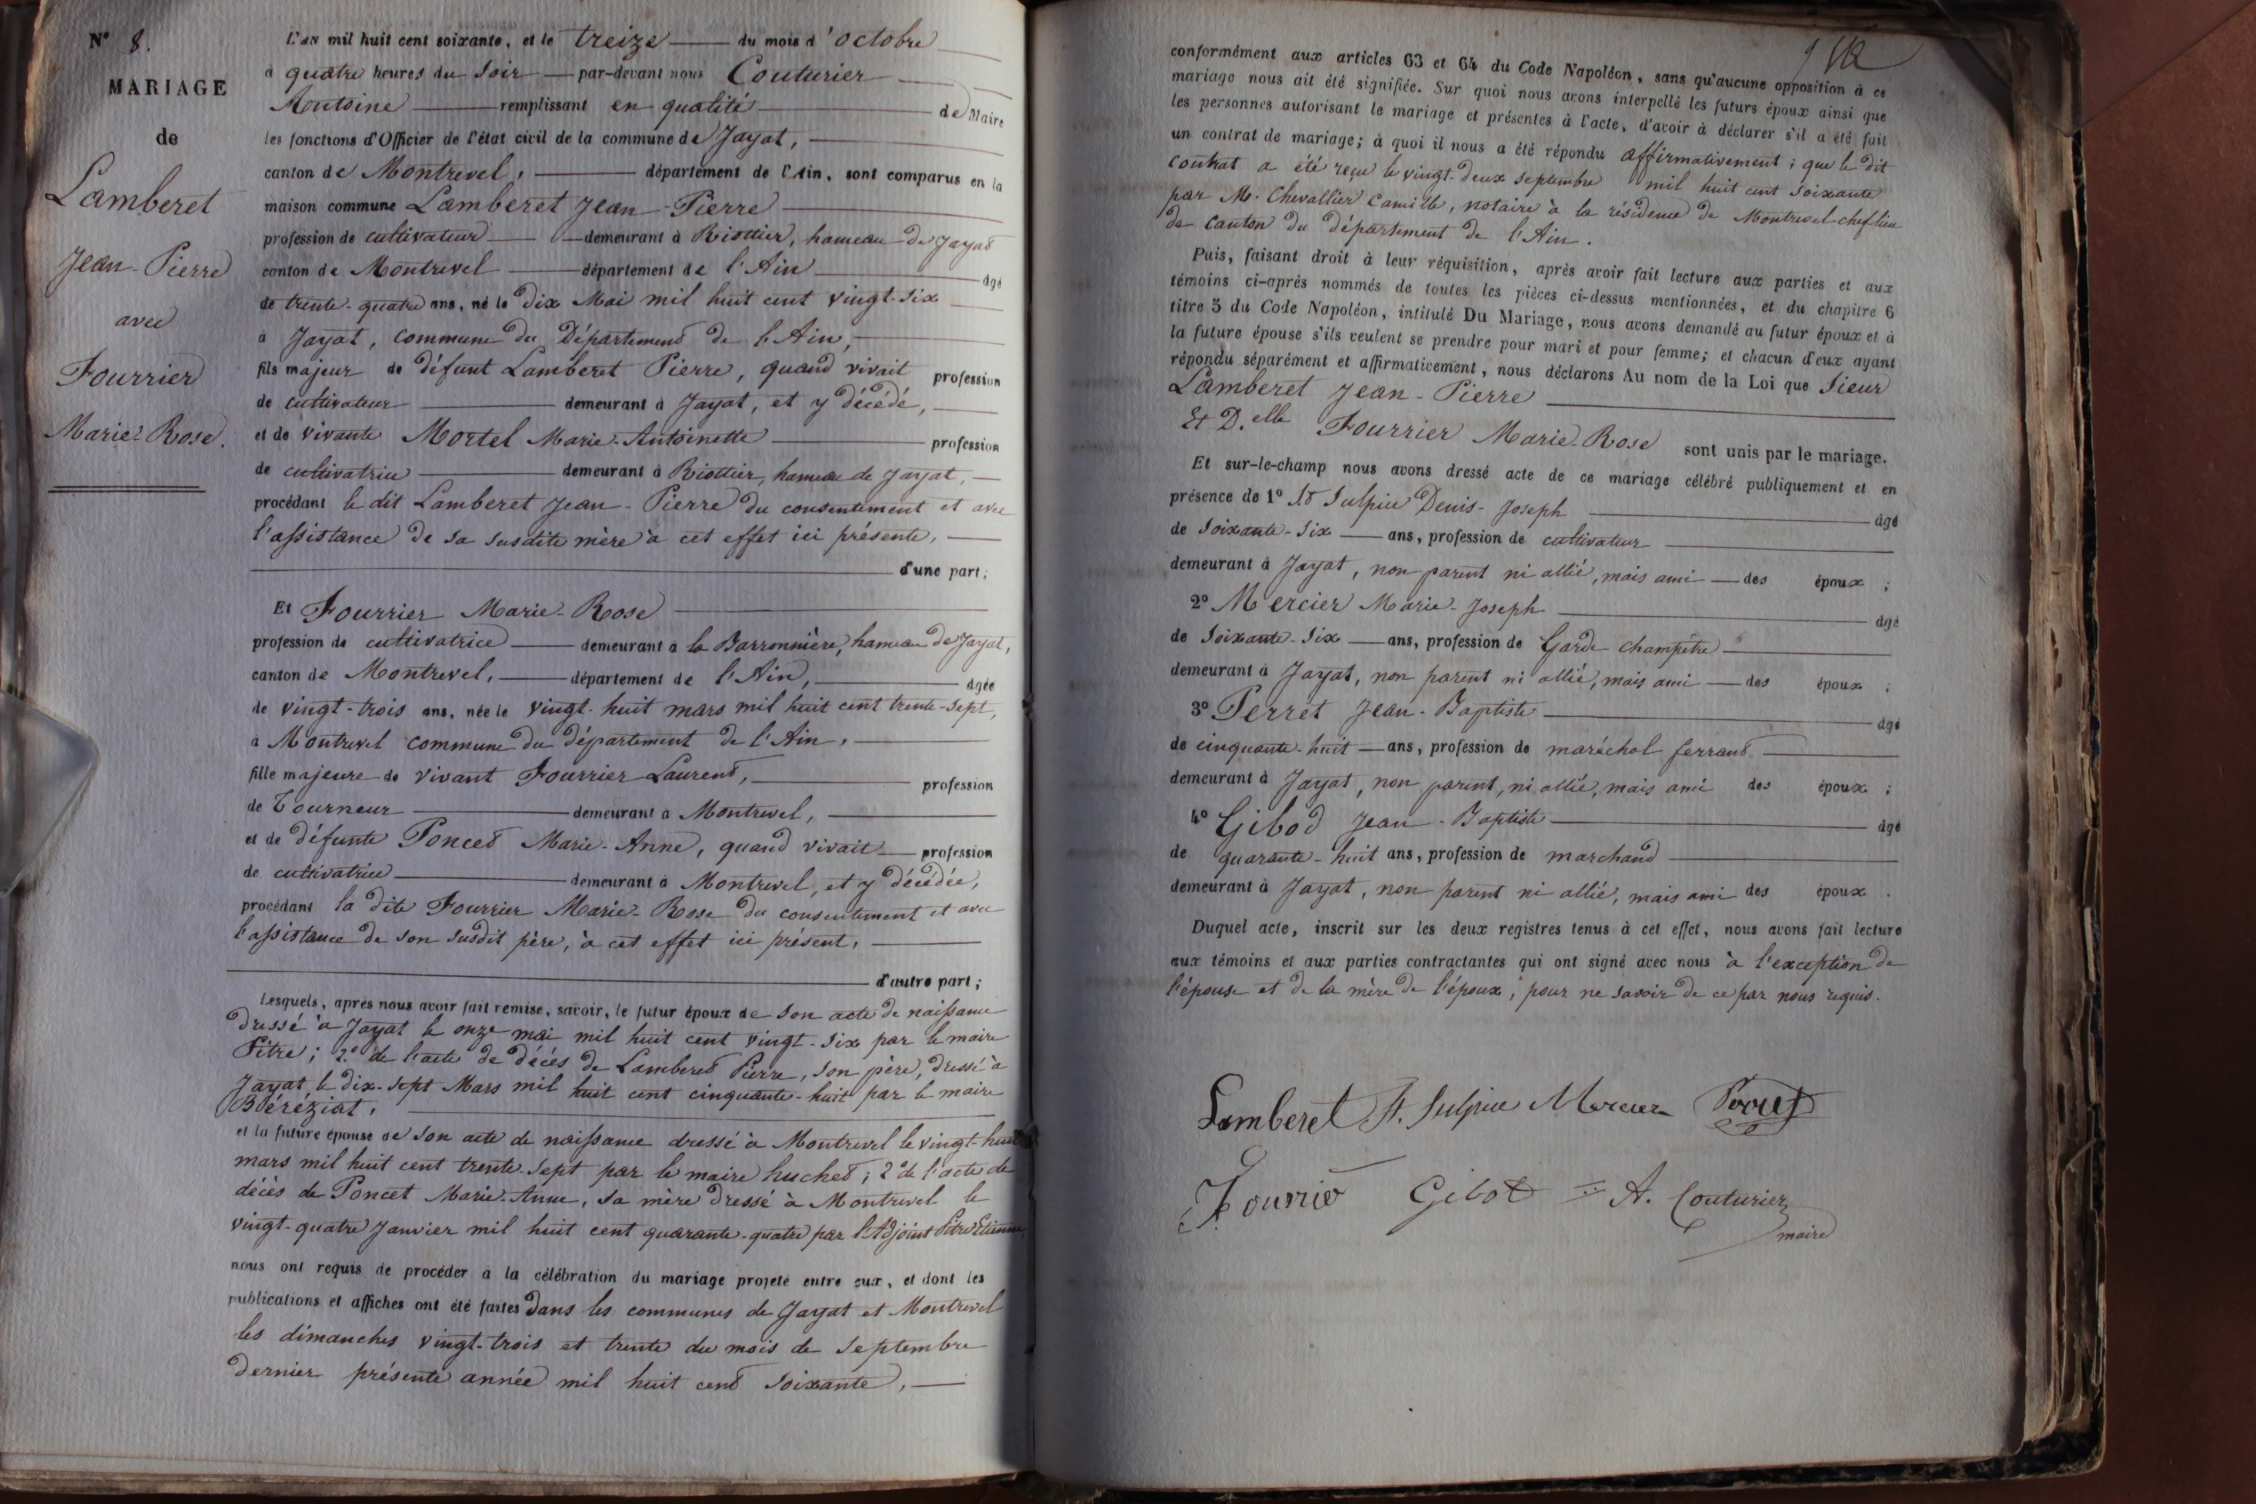 N° 8.
MARIAGE
de
Lamberet
Jean-Pierre
avec
Fourrier
Marie-Rose.
L'an mil huit cent soixante, et le treize du mois d'octobre
à quatre heures du soir par-devant nous Couturier
Antoine remplissant en qualité de Maire
les fonctions d'Officier de l'état civil de la commune de Jayat,
canton de Montrevel, département de l'Ain, sont comparus en la
maison commune Lamberet Jean-Pierre
profession de cultivateur demeurant à Riottier, hameau de Jayat
canton de Montrevel département de l'Ain âgé
de trente-quatre ans, né le dix Mai mil huit cent vingt-six
à Jayat, commune du Département de l'Ain,
fils majeur de défunt Lamberet Pierre, quand vivait profession
de cultivateur demeurant à Jayat, et y décédé,
et de vivante Mortel Marie-Antoinette profession
de cultivatrice demeurant à Riottier, hameau de Jayat,
procédant le dit Lamberet Jean-Pierre du consentement et avec
l'assistance de sa susdite mère à cet effet ici présente,
d'une part;
Et Fourrier Marie-Rose
profession de cultivatrice demeurant à la Barronnière, hameau de Jayat,
canton de Montrevel, département de l'Ain, âgée
de vingt-trois ans, née le vingt-huit mars mil huit cent trente-sept,
à Montrevel commune du département de l'Ain,
fille majeure de vivant Fourrier Laurent, profession
de Tourneur demeurant à Montrevel,
et de défunte Poncet Marie-Anne, quand vivait profession
de cultivatrice demeurant à Montrevel, et y décédée,
procédant la dite Fourrier Marie-Rose du consentement et avec
l'assistance de son susdit père, à cet effet ici présent,
d'autre part;
Lesquels, après nous avoir fait remise, savoir, le futur époux de son acte de naissance
dressé à Jayat le onze mai mil huit cent vingt-six par le maire
Pitre; 2° de l'acte de décès de Lamberet Pierre, son père, dressé à
Jayat le dix-sept Mars mil huit cent cinquante-huit par le maire
Béréziat,
et la future épouse de son acte de naissance dressé à Montrevel le vingt-huit
mars mil huit cent trente-sept par le maire huchet; 2° de l'acte de
décès de Poncet Marie-Anne, sa mère dressé à Montrevel le
vingt-quatre Janvier mil huit cent quarante-quatre par l'Adjoint Pitre Etienne,
nous ont requis de procéder à la célébration du mariage projeté entre eux, et dont les
publications et affiches ont été faites dans les communes de Jayat et Montrevel
les dimanches vingt-trois et trente du mois de septembre
dernier présente année mil huit cent soixante,
conformément aux articles 63 et 64 du Code Napoléon, sans qu'aucune opposition à ce
mariage nous ait été signifiée. Sur quoi nous avons interpellé les futurs époux ainsi que
les personnes autorisant le mariage et présentes à l'acte, d'avoir à déclarer s'il a été fait
un contrat de mariage; à quoi il nous a été répondu affirmativement; que le dit
contrat a été reçu le vingt-deux septembre mil huit cent soixante
par Me. Chevallier Camille, notaire à la résidence de Montrevel chef-lieu
de canton du département de l'Ain.
Puis, faisant droit à leur réquisition, après avoir fait lecture aux parties et aux
témoins ci-après nommés de toutes les pièces ci-dessus mentionnées, et du chapitre 6
titre 5 du Code Napoléon, intitulé Du Mariage, nous avons demandé au futur époux et à
la future épouse s'ils veulent se prendre pour mari et pour femme; et chacun d'eux ayant
répondu séparément et affirmativement, nous déclarons Au nom de la Loi que Sieur
Lamberet Jean-Pierre
Et D.elle Fourrier Marie-Rose sont unis par le mariage.
Et sur-le-champ nous avons dressé acte de ce mariage célébré publiquement et en
présence de 1° St Sulpice Denis-Joseph âgé
de soixante-six ans, profession de cultivateur
demeurant à Jayat, non parent ni allié, mais ami des époux;
2° Mercier Marie-Joseph âgé
de soixante-six ans, profession de Garde champêtre
demeurant à Jayat, non parent ni allié, mais ami des époux;
3° Perret Jean-Baptiste âgé
de cinquante-huit ans, profession de maréchal ferrant
demeurant à Jayat, non parent, ni allié, mais ami des époux;
4° Gibod Jean-Baptiste âgé
de quarante-huit ans, profession de marchand
demeurant à Jayat, non parent ni allié, mais ami des époux.
Duquel acte, inscrit sur les deux registres tenus à cet effet, nous avons fait lecture
aux témoins et aux parties contractantes qui ont signé avec nous à l'exception de
l'épouse et de la mère de l'époux, pour ne savoir de ce par nous requis.
Lamberet St. Sulpice Mercier Perret
Fourrier Gibod A. Couturier
maire